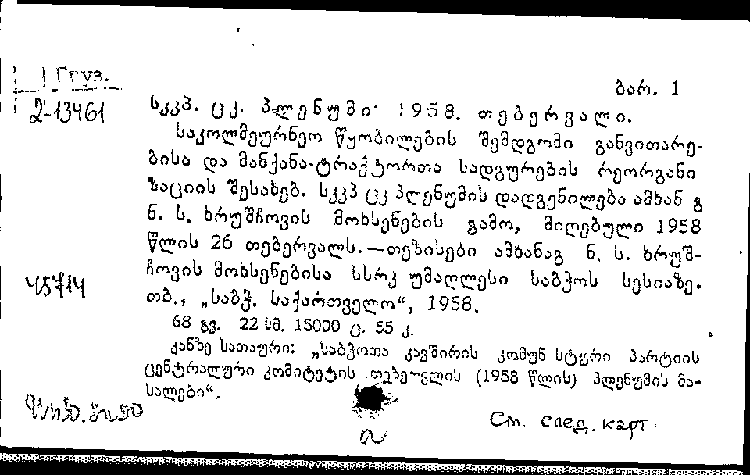 Груз.
ბარ. 1
2-13461
სკკპ. ცკ. პლენუმი 1958. თებერვალი.
საკოლმეურნეო წყობილების შემდგომი განვითარე-
ბისა და მანქანა-ტრაქტორთა სადგურების რეორგანი
ზაციის შესახებ. სკკპ ცკ პლენუმის დადგენილება ამხან გ
ნ. ს. ხრუშჩოვის მოხსენების გამო, მიღებული 1958
წლის 26 თებერვალს.—თეზისები ამხანაგ ნ. ს. ხრუშ-
ჩოვის მოხსენებისა სსრკ უმაღლესი საბჭოს სესიაზე.
თბ., „საბჭ. საქართველო“, 1958.
45714
68 გვ. 22 სმ. 15000 ც. 55 კ.
კანზე სათაური: „საბჭოთა კავშირის კომუნ სტური პარტიის
ცენტრალური კომიტეტის თებერვლის (1958 წლის) პლენუმის მა-
სალები“.
См. след. карт.